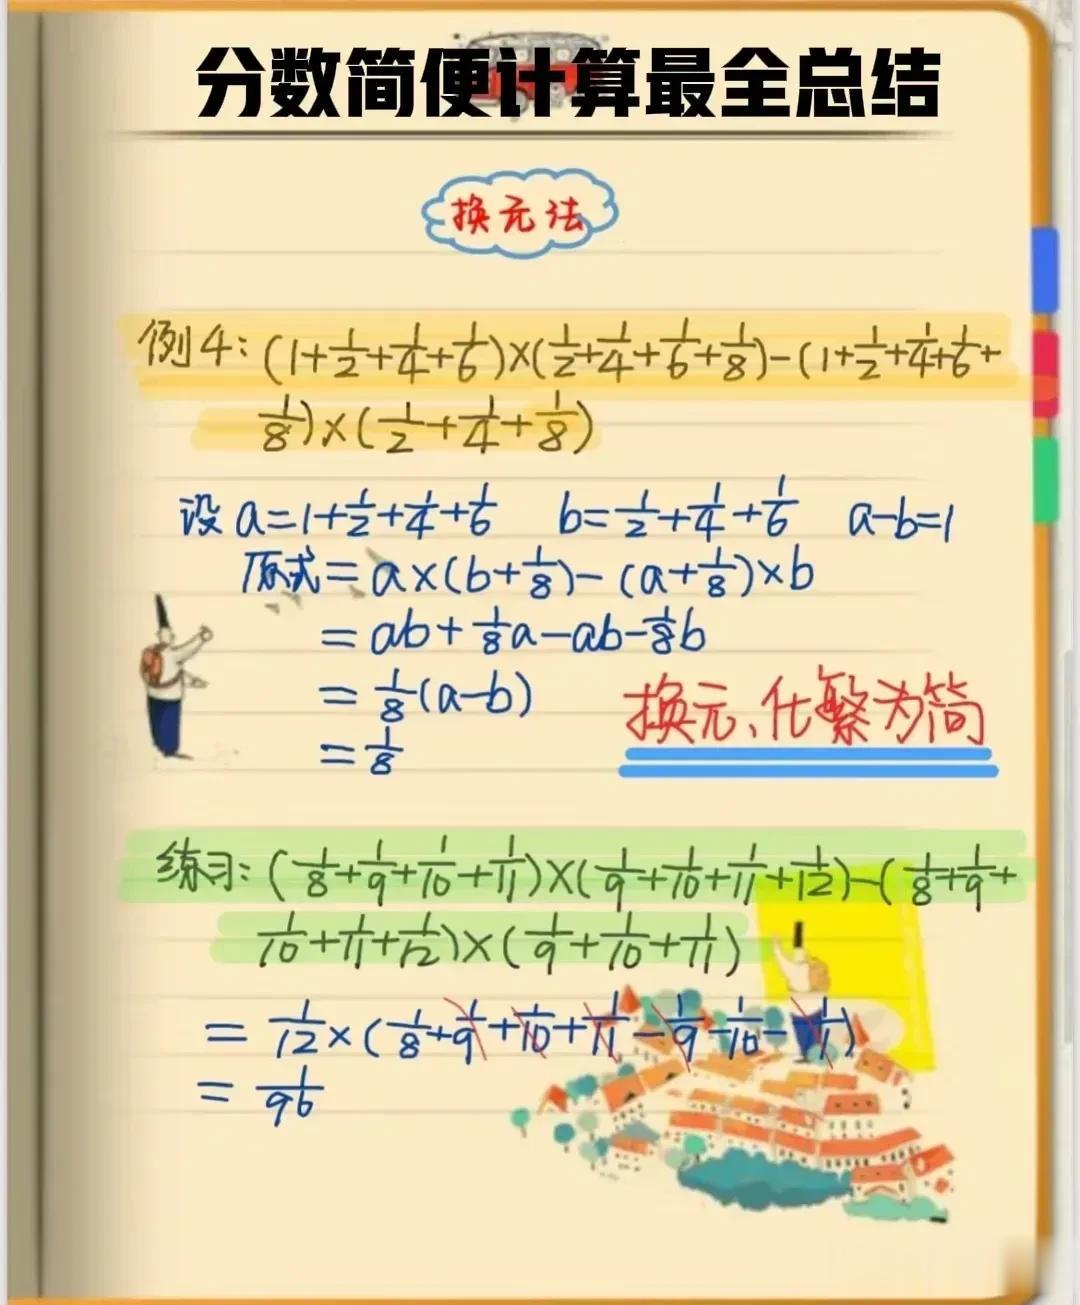 分数简便计算最全总结
换元法
例4: (1+1/2+1/4+1/6)×(1/2+1/4+1/6+1/8)-(1+1/2+1/4+1/6+
1/8)×(1/2+1/4+1/8)
设 a=1+1/2+1/4+1/6 b=1/2+1/4+1/6 a-b=1
原式=a×(b+1/8)-(a+1/8)×b
=ab+1/8a-ab-1/8b
=1/8(a-b)
=1/8
换元、化繁为简
练习: (1/8+1/9+1/10+1/11)×(1/9+1/10+1/11+1/12)-(1/8+1/9+
1/10+1/11+1/12)×(1/9+1/10+1/11)
=1/12×(1/8+1/9+1/10+1/11-1/9-1/10-1/11)
=1/96